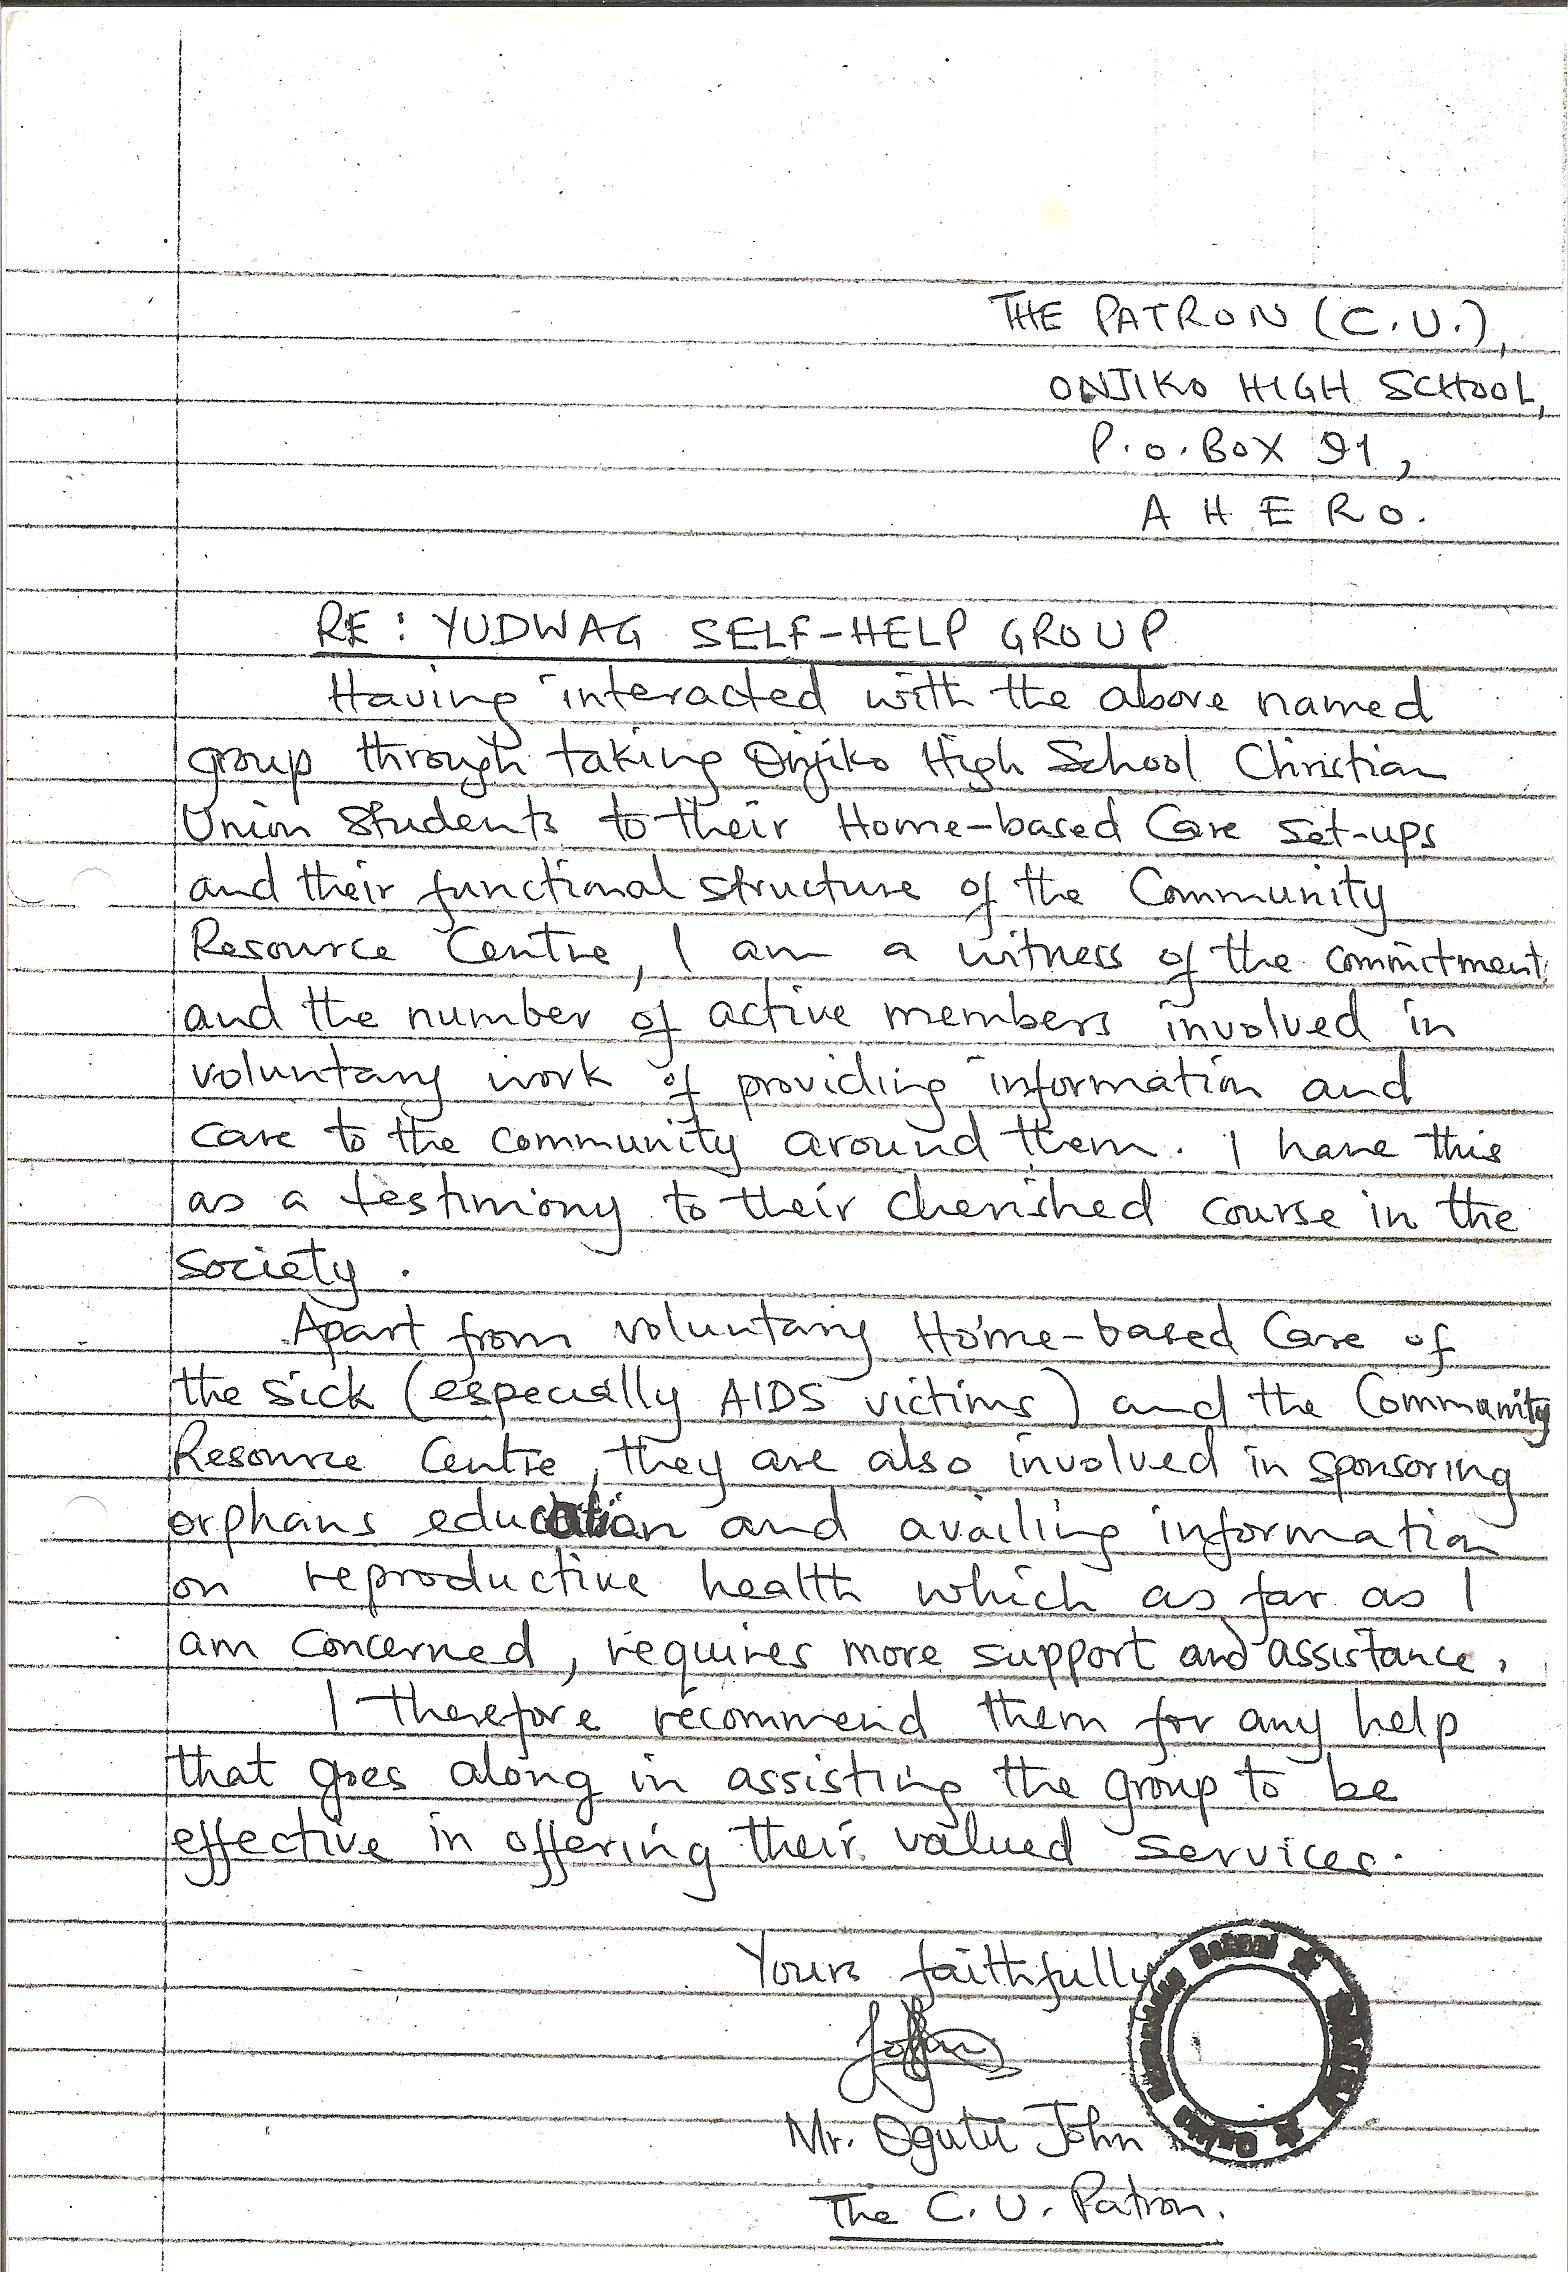 THE PATRON (C.U.),
ONJIKO HIGH SCHOOL,
P.O. BOX 91,
AHERO.
RE: YUDWAG SELF-HELP GROUP
Having interacted with the above named
group through taking Onjiko High School Christian
Union Students to their Home-based Care set-ups
and their functional structure of the Community
Resource Centre, I am a witness of the commitment
and the number of active members involved in
voluntary work of providing information and
care to the community around them. I have this
as a testimony to their cherished course in the
society.
Apart from voluntary Home-based Care of
the sick (especially AIDS victims) and the Community
Resource Centre, they are also involved in sponsoring
orphans education and availing information
on reproductive health which as far as I
am concerned, requires more support and assistance.
I therefore recommend them for any help
that goes along in assisting the group to be
effective in offering their valued services.
Yours faithfully
John
Mr. Ogutu John
The C.U. Patron.
School